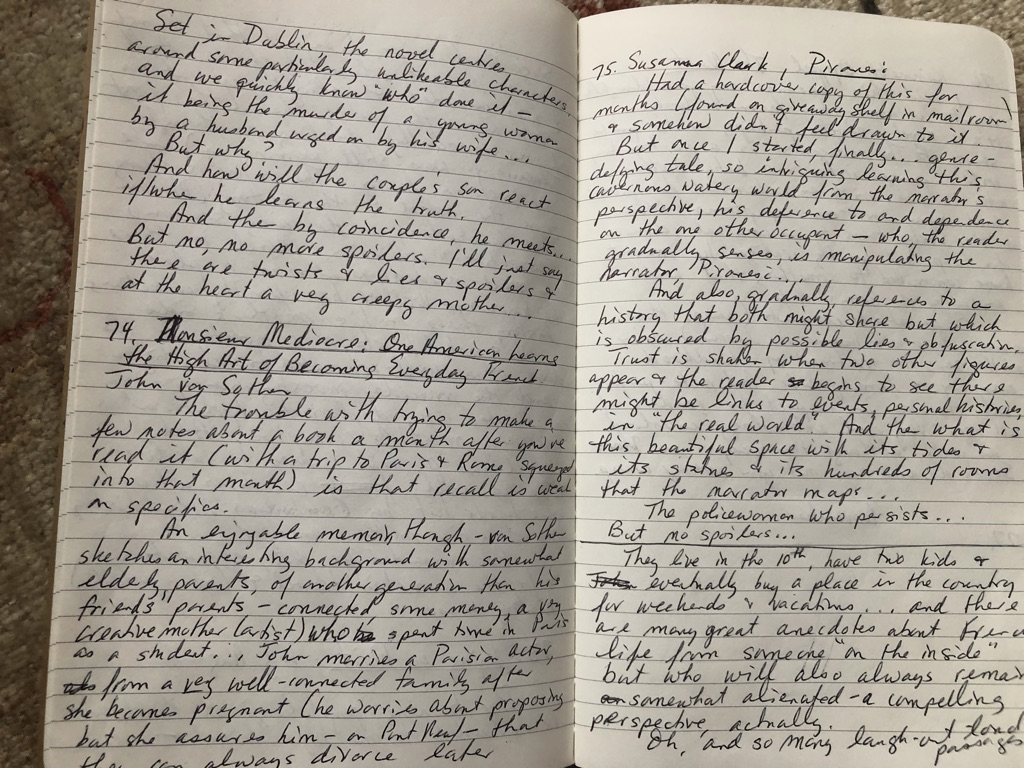 Set in Dublin, the novel centres
around some particularly unlikeable characters,
and we quickly know "who" done it –
it being the murder of a young woman
by a husband urged on by his wife...
But why?
And how will the couple's son react
if/when he learns the truth.
And then by coincidence, he meets...
But no, no more spoilers. I'll just say
there are twists & lies & spoilers &
at the heart a very creepy mother...
74. Monsieur Mediocre: One American learns
the High Art of Becoming Everyday French
John von Sothen
The trouble with trying to make a
few notes about a book a month after you've
read it (with a trip to Paris & Rome squeezed
into that month) is that recall is weak
on specifics.
An enjoyable memoir though – von Sothen
sketches an interesting background with somewhat
elderly parents, of another generation than his
friends' parents – connected, some money, a very
creative mother (artist) who spent time in Paris
as a student... John marries a Parisian actor,
from a very well-connected family after
she becomes pregnant (he worries about proposing
but she assures him – on Pont Neuf – that
they can always divorce later
75. Susanna Clark, Piranesi
Had a hardcover copy of this for
months (found on giveaway shelf in mailroom)
& somehow didn't feel drawn to it.
But once I started finally... genre-
defying tale, so intriguing learning this
cavernous watery world from the narrator's
perspective, his deference to and dependence
on the one other occupant – who, the reader
gradually senses, is manipulating the
narrator, Piranesi...
And also, gradually references to a
history that both might share but which
is obscured by possible lies & obfuscation.
Trust is shaken when two other figures
appear & the reader begins to see there
might be links to events, personal histories,
in "the real world". And then what is
this beautiful space with its tides &
its statues & its hundreds of rooms
that the narrator maps...
The policewoman who persists...
But no spoilers...
They live in the 10th, have two kids &
eventually buy a place in the country
for weekends & vacations... and there
are many great anecdotes about French
life from someone "on the inside"
but who will also always remain
somewhat alienated – a compelling
perspective, actually.
Oh, and so many laugh-out loud
passages